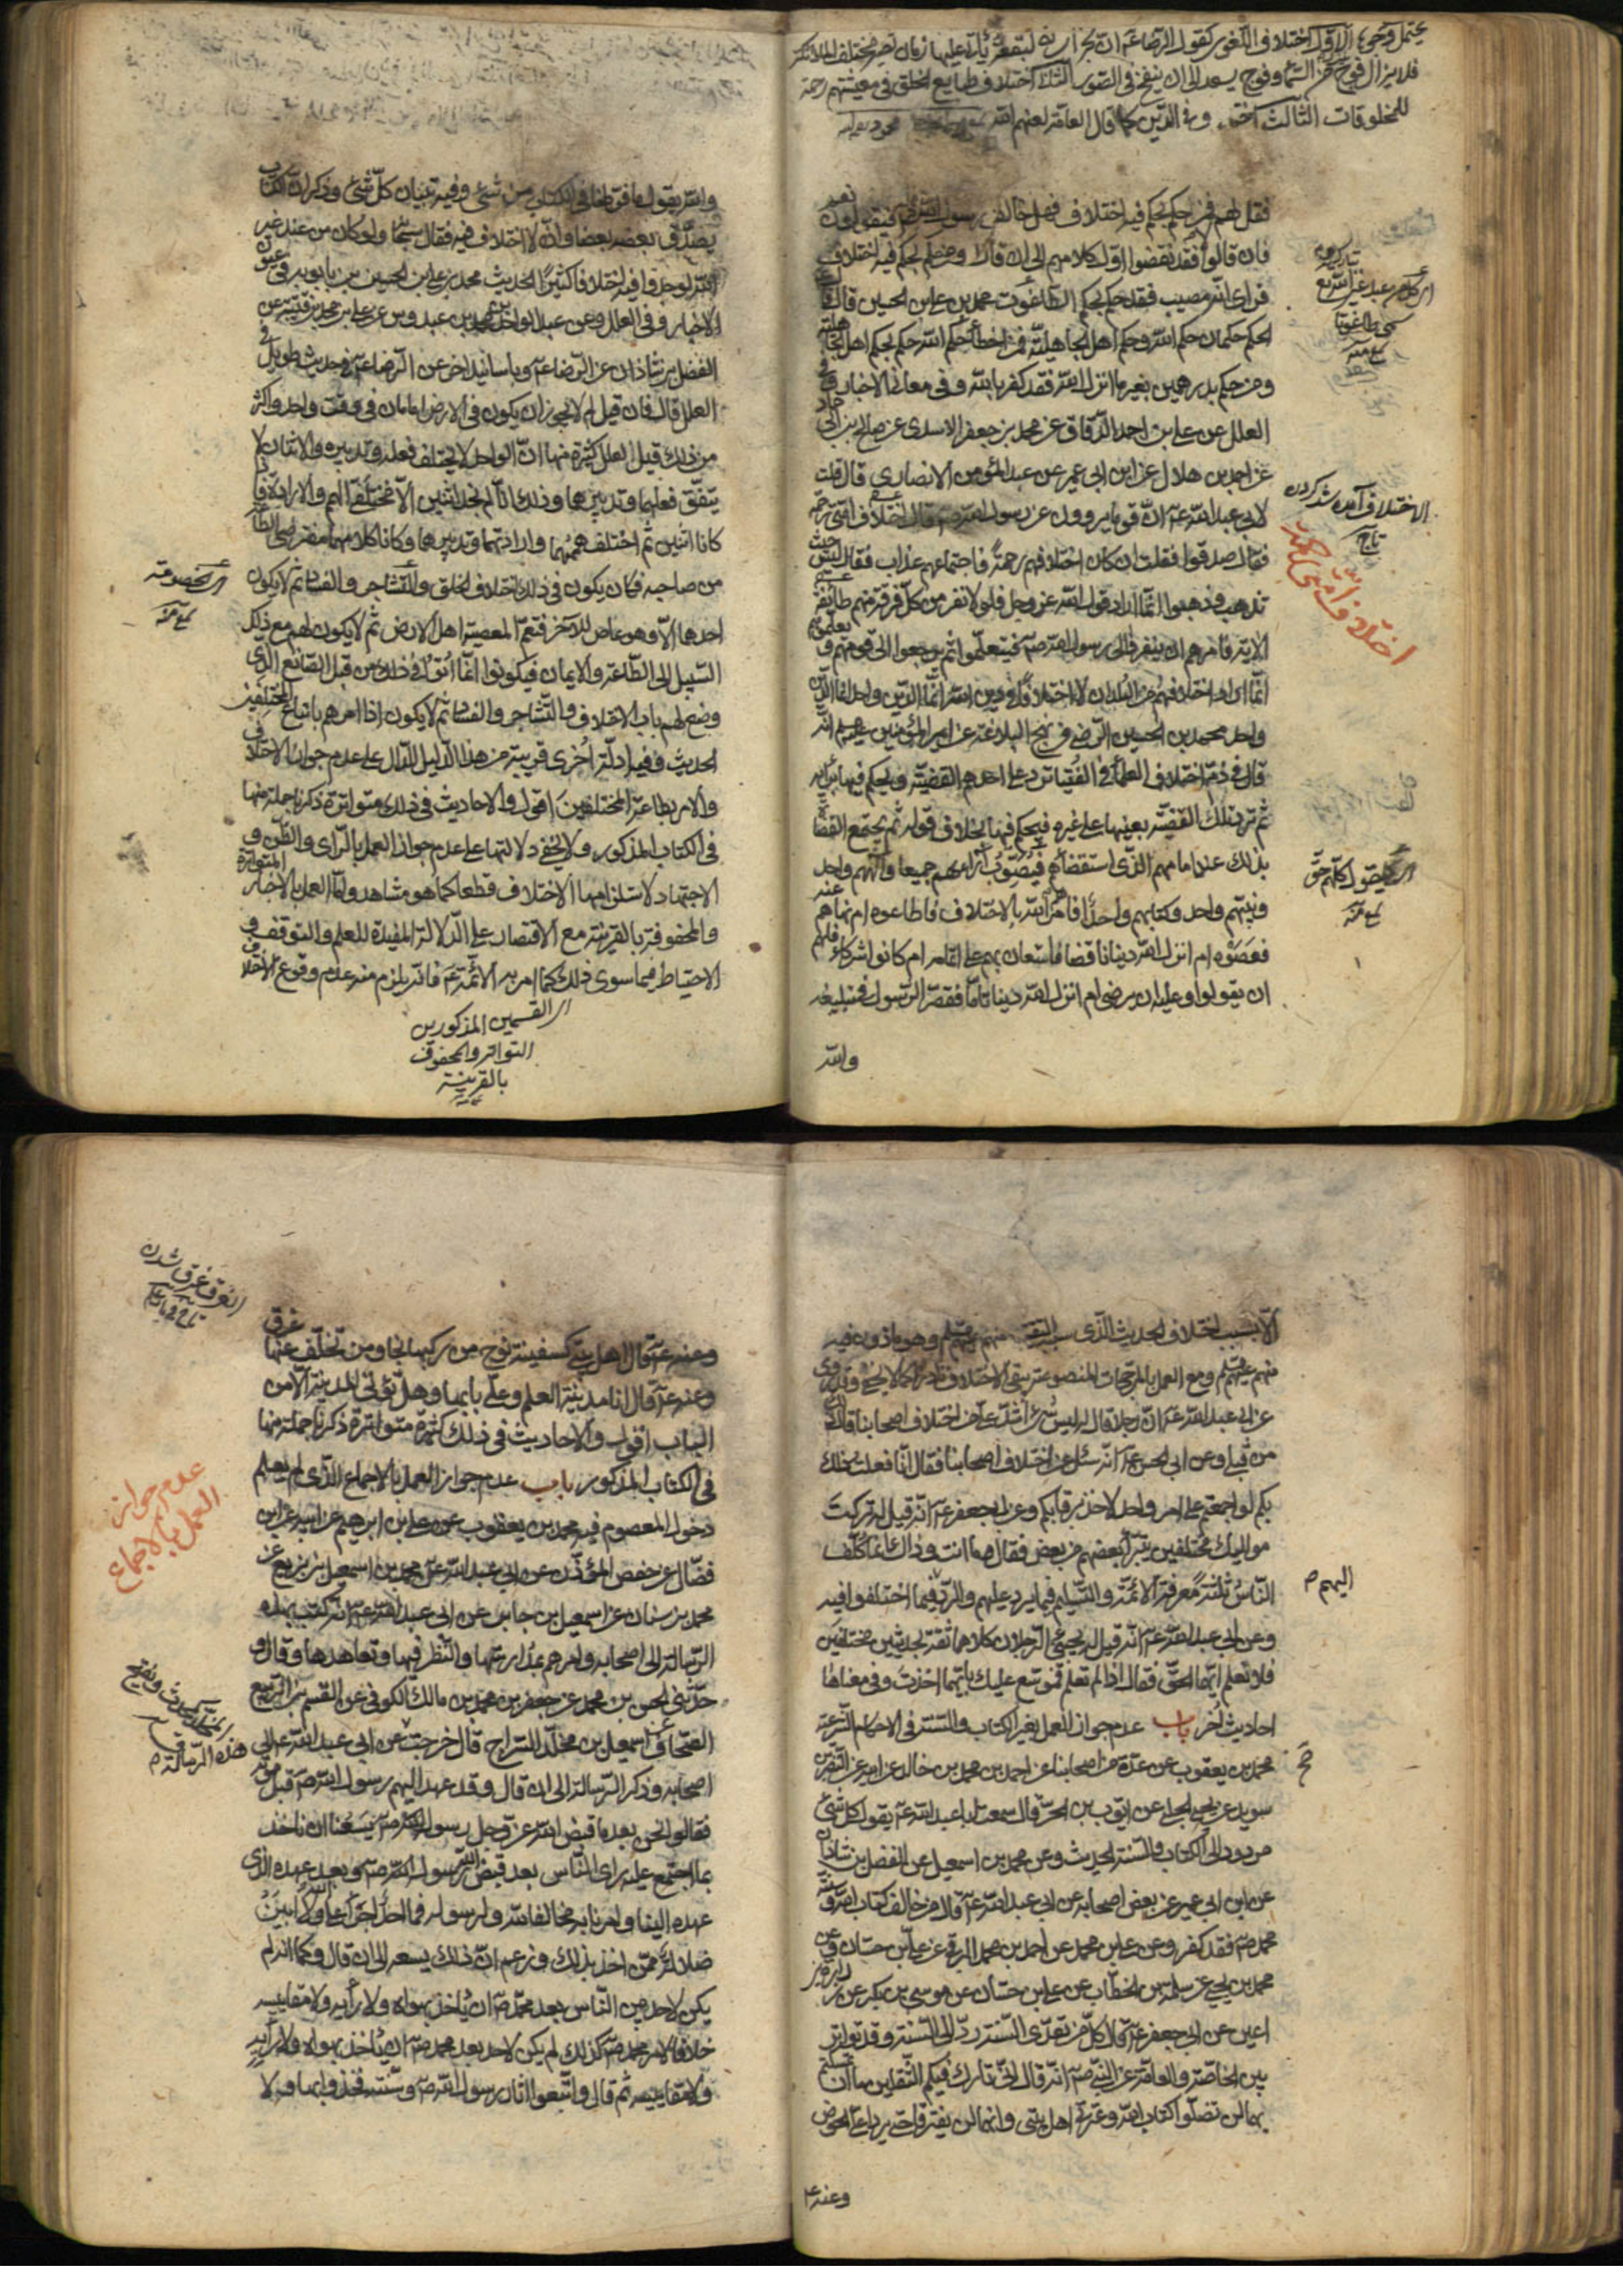 يحتمل وجوها الاول اختلاف اللغوى كقول الرضا عم ان بخراسان لبقعة يأتى عليها زمان تصير مختلف الملائكة
فلا يزال فوج ينزل من السماء وفوج يصعد الى ان ينفخ فى الصور الثانى اختلاف طبايع الخلق فى معيشتهم رحمة
للمخلوقات الثالث فى الدين كما قال العامة لعنهم الله
فقل لهم فمن حكم بحكم فيه اختلاف فهل خالف رسول الله ص فيقولون نعم
فان قالوا لا فقد نقضوا اول كلامهم الى ان قال ومن حكم بحكم فيه اختلاف
فراى انه مصيب فقد حكم بحكم الطاغوت محمد بن على بن الحسين قال قال ع
الحكم حكمان حكم الله وحكم اهل الجاهلية فمن اخطأ حكم الله حكم بحكم اهل الجاهلية
ومن حكم بدرهمين بغير ما انزل الله فقد كفر بالله وفى معانى الاخبار وفى
العلل عن على بن احمد الدقاق عن محمد بن جعفر الاسدى عن صالح بن ابى حماد
عن احمد بن هلال عن ابن ابى عمير عن عبد المؤمن الانصارى قال قلت
لابى عبد الله عم ان قوما يروون عن رسول الله ص قال اختلاف امتى رحمة
فقال صدقوا فقلت ان كان اختلافهم رحمة فاجتماعهم عذاب فقال ليس حيث
تذهب وذهبوا انما اراد قول الله عز وجل فلولا نفر من كل فرقة منهم طائفة
الاية فامرهم ان ينفروا الى رسول الله ص فيتعلموا ثم يرجعوا الى قومهم فيعلموهم
انما اراد اختلافهم من البلدان لا اختلافا فى دين الله انما الدين واحد انما الدين
واحد محمد بن الحسين الرضى فى نهج البلاغة عن امير المؤمنين عليه السلم انه
قال فى ذم اختلاف العلماء فى الفتيا ترد على احدهم القضية فيحكم فيها برأيه
ثم ترد تلك القضية بعينها على غيره فيحكم فيها بخلاف قوله ثم يجتمع القضاة
بذلك عند امامهم الذى استقضاهم فيصوب آراءهم جميعا والههم واحد
ونبيهم واحد وكتابهم واحد افامرهم الله بالاختلاف فاطاعوه ام نهاهم عنه
فعصوه ام انزل الله دينا ناقصا فاستعان بهم على اتمامه ام كانوا شركاء فلهم
ان يقولوا وعليه ان يرضى ام انزل الله دينا تاما فقصر الرسول فى تبليغه
والله
اى كل من عبد غير الله تع
يسمى طاغوتا
الاختلاف آمد وشد كردن
تاج
اختلاف امتى رحمة
اى يقول كلهم حق
سمع منه
والله يقول ما فرطنا فى الكتاب من شئ وفيه تبيان كل شئ وذكر ان الكتاب
يصدق بعضه بعضا وانه لا اختلاف فيه فقال سبحانه ولو كان من عند غير
الله لوجدوا فيه اختلافا كثيرا الحديث محمد بن على بن الحسين بن بابويه فى عيون
الاخبار وفى العلل وعن عبد الواحد بن محمد بن عبدوس عن على بن محمد بن قتيبة عن
الفضل بن شاذان عن الرضا عم وباسانيد اخر عن الرضا عم فى حديث طويل فى
العلل قال فان قيل لم لا يجوز ان يكون فى الارض امامان فى وقت واحد واكثر
من ذلك قيل لعلل كثيرة منها ان الواحد لا يختلف فعله وتدبيره والاثنان لا
يتفق فعلهما وتدبيرهما وذلك انا لم نجد اثنين الا مختلفى الهم والارادة فاذا
كانا اثنين ثم اختلف هممهما وارادتهما وتدبيرهما وكانا كلاهما مفترضى الطاعة
من صاحبه فكان يكون فى ذلك اختلاف الخلق والتشاجر والفساد ثم لا يكون
احدهما الا وهو عاص للآخر فتعم المعصية اهل الارض ثم لا يكون لهم مع ذلك
السبيل الى الطاعة والايمان فيكونوا انما اتوا فى ذلك من قبل الصانع الذى
وضع لهم باب الاختلاف والتشاجر والفساد ثم لا يكون اذا امرهم باتباع المختلفين
الحديث وفيه ادلة اخرى قريبة من هذا الدليل الدال على عدم جواز الاختلاف
والامر بطاعة المختلفين اقول والاحاديث فى ذلك متواترة ذكرنا جملة منها
فى الكتاب المذكور ولا يخفى دلالتها على عدم جواز العمل بالراى والظن و
الاجتهاد لاستلزامها الاختلاف قطعا كما هو مشاهد واما العمل بالاخبار المتواترة
والمحفوفة بالقرينة مع الاقتصار على الدلالة المفيدة للعلم والتوقف و
الاحتياط فيما سوى ذلك كما امر به الائمة عم فانه يلزم منه عدم وقوع الاختلاف
اى القسمين المذكورين
التواتر والمحفوف
بالقرينة
اى الخصومة
سمع منه
الا بسبب اختلاف الحديث الذى سببه التقية منهم عليهم السلم وهو ماذون فيه
منهم عليهم السلم ومع العمل بالمرجحات المنصوصة يبقى الاختلاف نادرا كما لا يخفى وقد روى
عن ابى عبد الله عم ان رجلا قال له ليس شئ اشد على من اختلاف اصحابنا قال ذلك
من قبلى وعن ابى الحسن عم انه سئل عن اختلاف اصحابنا فقال انا فعلت ذلك
بكم لو اجتمعتم على امر واحد لاخذ برقابكم وعن ابى جعفر عم انه قيل له تركت
مواليك مختلفين يتبرأ بعضهم من بعض فقال ما انت وذاك انما كلف
الناس ثلثة معرفة الائمة والتسليم فيما يرد عليهم والرد فيما اختلفوا فيه
وعن ابى عبد الله عم انه قيل له يجئ الرجلان كلاهما ثقة بحديثين مختلفين
فلا نعلم ايهما الحق فقال اذا لم تعلم فموسع عليك بايهما اخذت وفى معناها
احاديث اخر باب عدم جواز العمل بغير الكتاب والسنة فى الاحكام الشرعية
محمد بن يعقوب عن عدة من اصحابنا عن احمد بن محمد بن خالد عن ابيه عن النضر بن
سويد عن يحيى الحلبى عن ايوب بن الحر قال سمعت ابا عبد الله عم يقول كل شئ
مردود الى الكتاب والسنة الحديث وعن محمد بن اسمعيل عن الفضل بن شاذان
عن ابن ابى عمير عن بعض اصحابه عن ابى عبد الله عم قال من خالف كتاب الله وسنة
محمد ص فقد كفر وعن على بن محمد عن احمد بن محمد البرقى عن على بن حسان وعن
محمد بن يحيى عن سلمة بن الخطاب عن على بن حسان عن موسى بن بكر عن زرارة بن
اعين عن ابى جعفر عم قال كل من تعدى السنة رد الى السنة وقد تواتر
بين الخاصة والعامة عن النبى ص انه قال انى تارك فيكم الثقلين ما ان تمسكتم
بهما لن تضلوا كتاب الله وعترتى اهل بيتى وانهما لن يفترقا حتى يردا على الحوض
وعنه ع
اليهم م
وعنه ع قال اهل بيتى كسفينة نوح من ركبها نجا ومن تخلف عنها غرق
وعنه ع قال انا مدينة العلم وعلى بابها وهل تؤتى المدينة الا من
الباب اقول والاحاديث فى ذلك كثيرة متواترة ذكرنا جملة منها
فى الكتاب المذكور باب عدم جواز العمل بالاجماع الذى لم يعلم
دخول المعصوم فيه محمد بن يعقوب عن على بن ابرهيم عن ابيه عن ابن
فضال عن حفص المؤذن عن ابى عبد الله عم وعن محمد بن اسمعيل بن بزيع عن
محمد بن سنان عن اسمعيل بن جابر عن ابى عبد الله عم انه كتب بهذه
الرسالة الى اصحابه وامرهم بمدارستها والنظر فيها وتعاهدها وقال و
حدثنى الحسن بن محمد عن جعفر بن محمد بن مالك الكوفى عن القسم بن الربيع
الصحاف عن اسمعيل بن مخلد السراج قال خرجت عن ابى عبد الله عم الى
اصحابه وذكر الرسالة الى ان قال وقد عهد اليهم رسول الله ص قبل موته
فقالوا نحن بعد ما قبض الله عز وجل رسوله ص يسعنا ان ناخذ
بما اجتمع عليه راى الناس بعد قبض الله رسوله ص وبعد عهده الذى
عهده الينا وامرنا به مخالفا لله ولرسوله فما احد اجرأ على الله ولا ابين
ضلالة ممن اخذ بذلك وزعم ان ذلك يسعه الى ان قال وكما انه لم
يكن لاحد من الناس بعد محمد ص ان ياخذ بهواه ولا رأيه ولا مقاييسه
خلافا لامر محمد ص كذلك لم يكن لاحد بعد محمد ص ان ياخذ بهواه ولا رأيه
ولا مقاييسه ثم قال واتبعوا اثار رسول الله ص وسنته فخذوا بها ولا
الغرق غرق شدن
عدم جواز
العمل بالاجماع
هذه الرسالة م